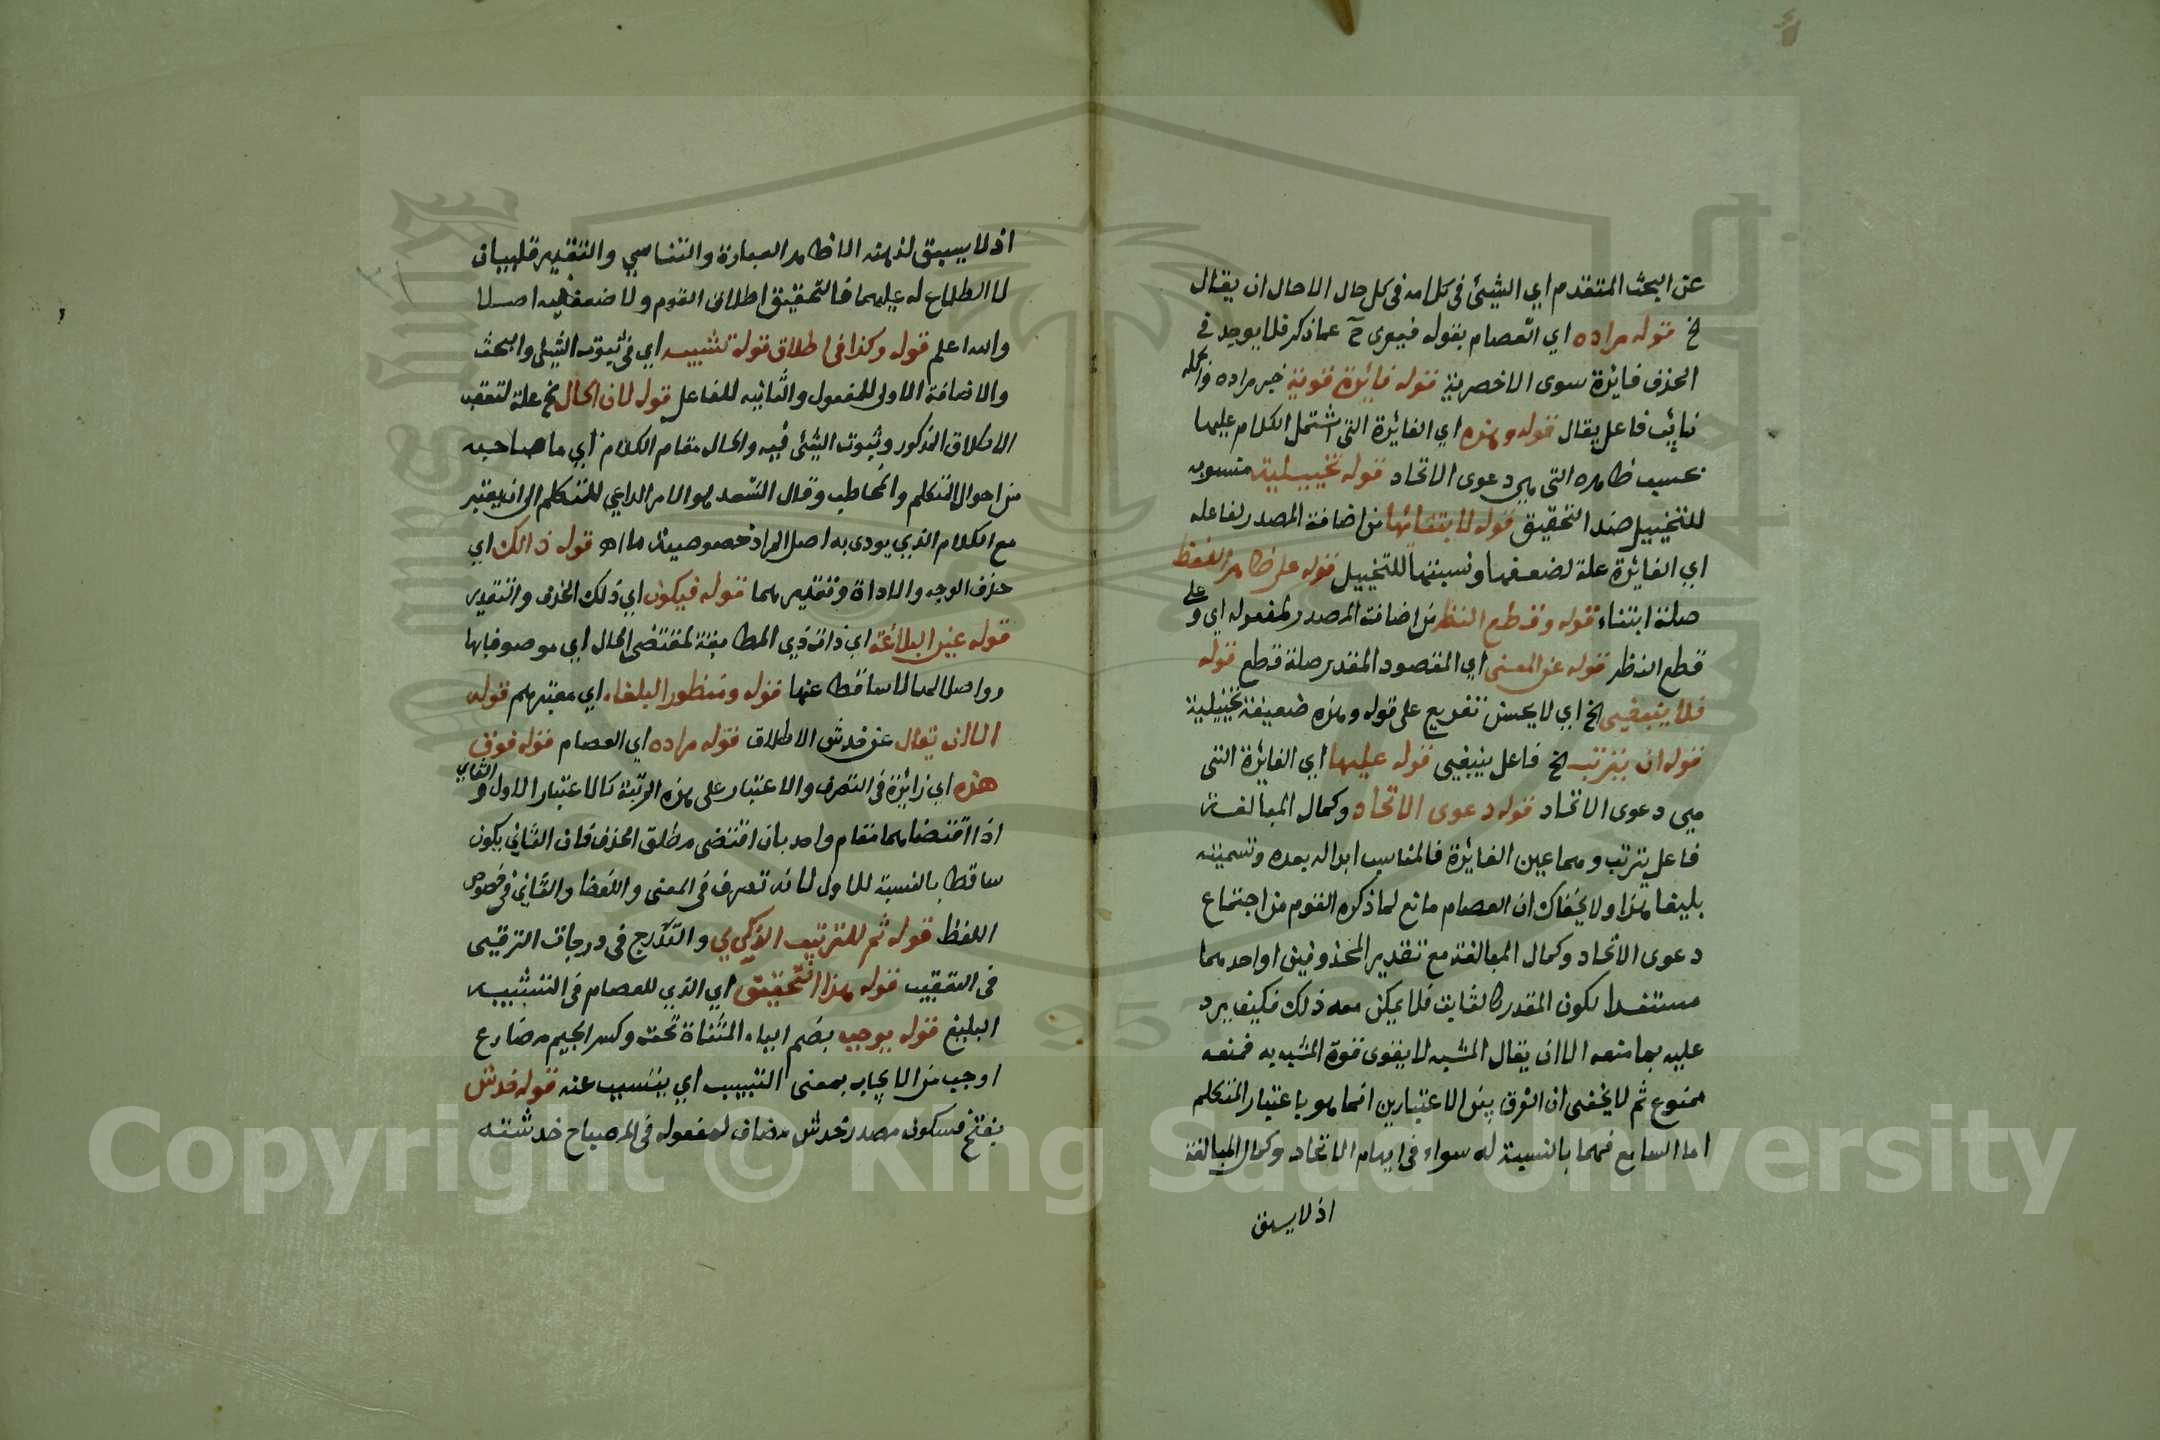 عن البحث المتقدم اي الشيئ في كلامه في كل حال الا حال ان يقال
الخ قوله مراده اي العصام بقوله فيعرى ح عما ذكر فلا يوجد في
الحذف فائدة سوى الاخصرية قوله فائدة قوية خبر مراده والجملة
نائب فاعل يقال قوله وهذه اي الفائدة التي اشتمل الكلام عليها
بحسب ظاهره التي هي دعوى الاتحاد قوله تخييلية منسوبة
للتخييل ضد التحقيق قوله لابتنائها من اضافة المصدر لفاعله
اي الفائدة علة لضعفها ونسبتها للتخييل قوله على ظاهر اللفظ
صلة ابتناء قوله وقطع النظر من اضافة المصدر لمفعوله اي وعلى
قطع النظر قوله عن المعنى اي المقصود المقدر صلة قطع قوله
فلا ينبغي الخ اي لا يحسن تفريع على قوله وهذه ضعيفة تخييلية
قوله ان يترتب الخ فاعل ينبغي قوله عليها اي الفائدة التي
هي دعوى الاتحاد قوله دعوى الاتحاد وكمال المبالغة
فاعل يترتب وهما عين الفائدة فالمناسب ابداله بعده وتسميته
بليغا هذا ولا يخفاك ان العصام مانع لما ذكره القوم من اجتماع
دعوى الاتحاد وكمال المبالغة مع تقدير المحذوفين او احدهما
مستندا لكون المقدر كالثابت فلا يمكن معه ذلك فكيف يرد
عليه بما منعه الا ان يقال المشبه لا يقوى قوة المشبه به فمنعه
ممنوع ثم لا يخفى ان الفرق بين الاعتبارين انما هو باعتبار المتكلم
اما السامع فهما بالنسبة له سواء في ايهام الاتحاد وكمال المبالغة
اذ لا يسبق
اذ لا يسبق لذهنه الا ظاهر العبارة والتناسي والتقدير قلبيان
لا اطلاع له عليهما فالتحقيق اطلاق القوم ولا ضعف فيه اصلا
والله اعلم قوله وكذا في اطلاق قوله تشبيه اي في ثبوت الشيئ والبحث
والاضافة الاولى للمفعول والثانيه للفاعل قوله لان الحال الخ علة لتعقب
الاطلاق المذكور وثبوت الشيئ فيه والحال مقام الكلام اي ما صاحبه
من احوال المتكلم والمخاطب وقال السعد هو الامر الداعي للمتكلم الى ان يعتبر
مع الكلام الذي يودى به اصل المراد خصوصية ما اه قوله ذالك اي
حذف الوجه والاداة وتقديرهما قوله فيكون اي ذلك الحذف والتقدير
قوله عين البلاغة اي ذات ذي المطابقة لمقتضى الحال اي موصوفا بها
وواصلا لها لا ساقطا عنها قوله ومنظور البلغاء اي معتبرهم قوله
الا ان يقال عن خدش الاطلاق قوله مراده اي العصام قوله فوق
هذه اي زائدة في التصرف والاعتبار على هذه الرتبة كالاعتبار الاول والثاني
اذا اقتضاهما مقام واحد بان اقتضى مطلق الحذف فان الثاني يكون
ساقطا بالنسبة للاول لانه تصرف في المعنى واللفظ والثاني في خصوص
اللفظ قوله ثم للترتيب الذكري والتدرج في درجات الترقي
في التعقيب قوله هذا التحقيق اي الذي للعصام في التشبيه
البليغ قوله يوجب بضم الياء المثناة تحت وكسر الجيم مضارع
اوجب من الايجاب بمعنى التسبب اي يتسبب عنه قوله خدش
بفتح فسكون مصدر خدش مضاف لمفعوله في المصباح خدشته
Copyright © King Saud University